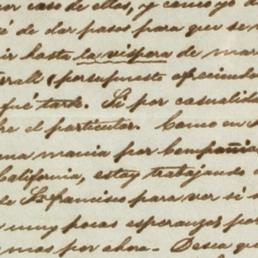 por caso de ellos, y como yo d
é de dar pasos para que se m
ir hasta la víspera de mar
trall (por supuesto ofreciendo
fué tarde. Si por casualida
re el particular. Como en
una mania por compañia
California, estoy trabajando
de Sn. francisco para ver si s
muy pocas esperanzas, por
mas por ahora. Desea que